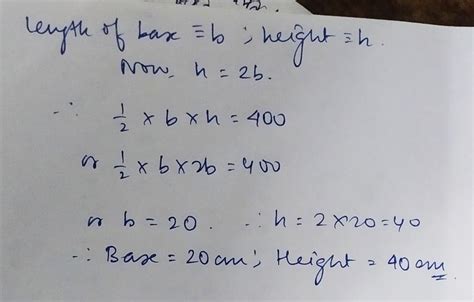 length of base ≡ b ; height ≡ h.
Now, h = 2b.
∴ 1/2 × b × h = 400
or 1/2 × b × 2b = 400
or b = 20 . ∴ h = 2×20 = 40
∴ Base = 20 cm ; Height = 40 cm